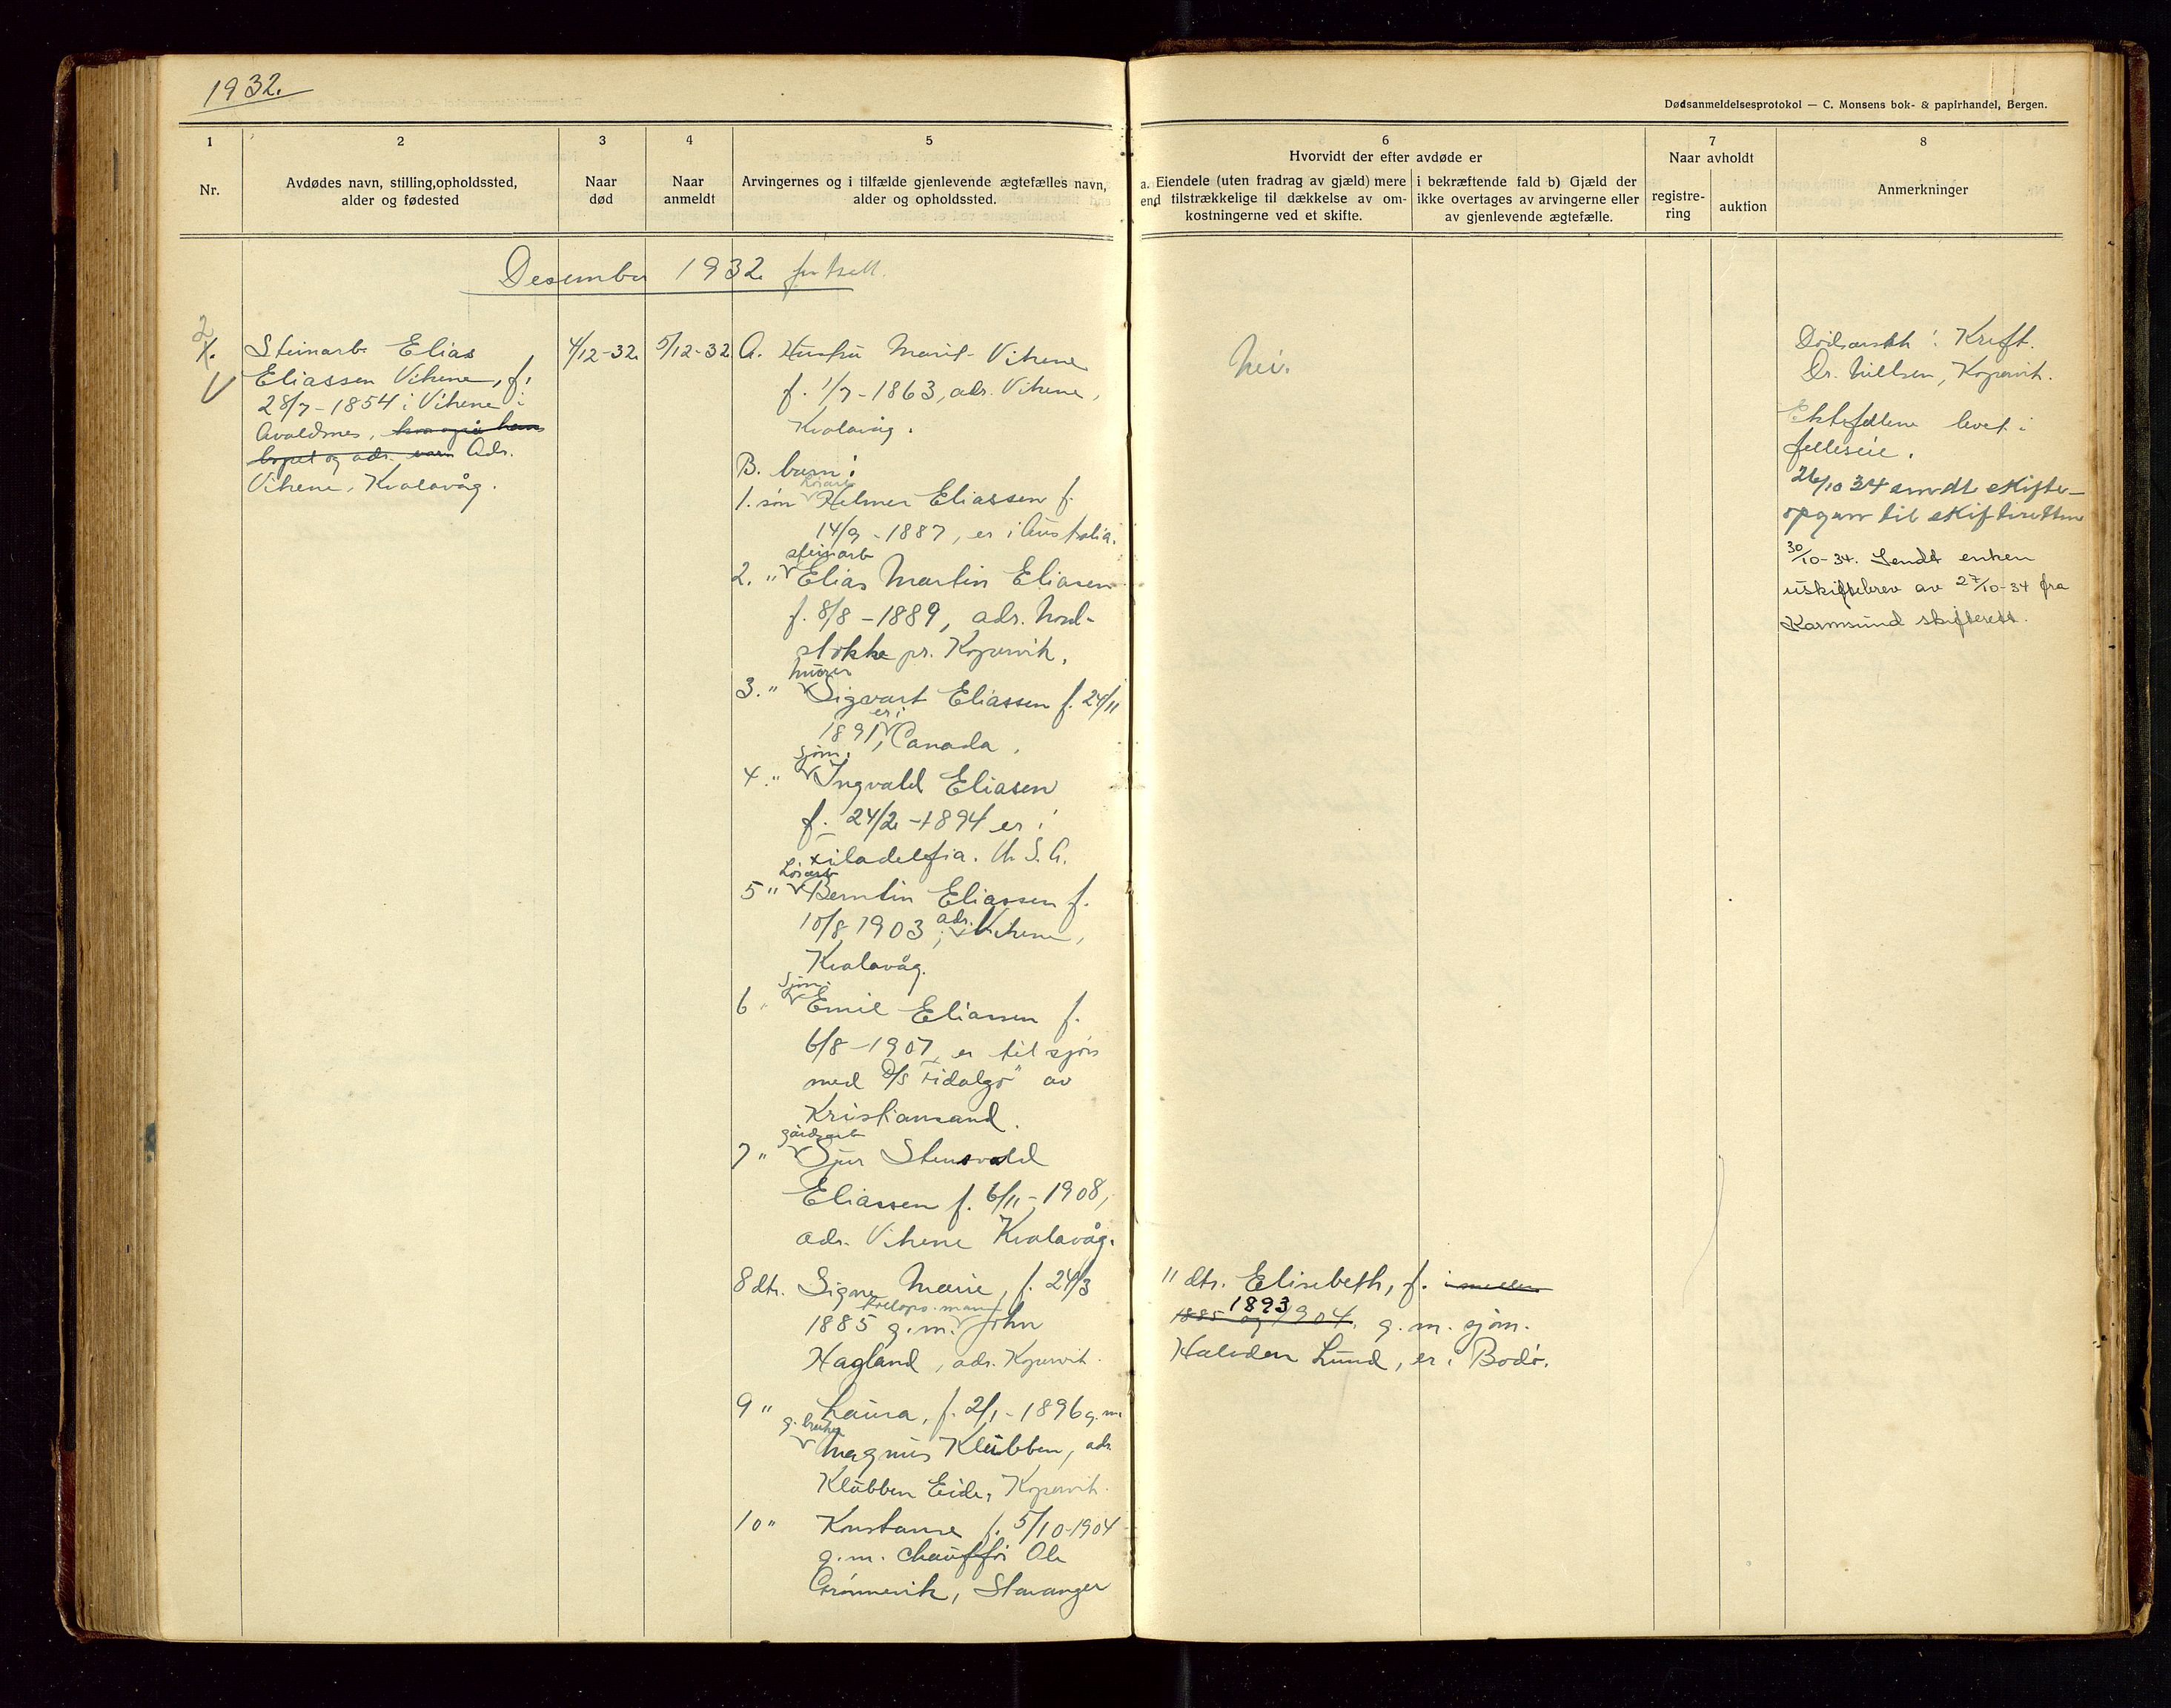 1932.
Dødsanmeldelsesprotokol — C. Monsens bok- & papirhandel, Bergen.
1
2
3
4
5
6
7
8
Nr.
Avdødes navn, stilling, opholdssted,
alder og fødested
Naar
død
Naar
anmeldt
Arvingernes og i tilfælde gjenlevende ægtefælles navn,
alder og opholdssted.
Hvorvidt der efter avdøde er
a. Eiendele (uten fradrag av gjæld) mere
end tilstrækkelige til dækkelse av om-
kostningerne ved et skifte.
i bekræftende fald b) Gjæld der
ikke overtages av arvingerne eller
av gjenlevende ægtefælle.
Naar avholdt
registre-
ring
auktion
Anmerkninger
Desember 1932 fortsatt.
2
1.
Steinarb. Elias
Eliassen Vikene, f.
28/7-1854 i Vikene i
Avaldsnes, Adr.
Vikene, Kvalavåg.
4/12-32.
5/12-32
A. Hustru Marit Vikene
f. 1/7-1863, adr. Vikene,
Kvalavåg.
B. barn:
løsarb
1. søn Helmer Eliassen f.
14/9-1887, er i Australia.
steinarb
2. " Elias Martin Eliasen
f. 8/8-1889, adr. Nord-
stokke pr. Kopervik.
murer
3. " Sigvart Eliassen f. 24/11
er i
1891, Canada.
sjøm.
4. " Ingvald Eliasen
f. 24/2-1894 er i
Filadelfia. U.S.A.
Løsarb
5 " Berntin Eliassen f.
10/8 1903, adr. Vikene,
Kvalavåg.
Sjøm.
6 " Emil Eliassen f.
6/8-1907, er til sjøs
med D/S "Fidalgo" av
Kristiansand.
gårdsarb
7 " Sjur Stensvald
Eliassen f. 6/11-1908,
adr. Vikene Kvalavåg.
8 dtr. Signe Marie, f. 24/3
1885 g.m. John
Hagland, adr. Kopervik.
9 " Laura, f. 2/1-1896 g.m.
g. bruker
Magnus Klubben, adr.
Klubben Eide, Kopervik.
10 " Konstanse f. 5/10-1904
g.m. chauffør Ole
Grønnevik, Stavanger
Nei.
11 dtr. Elisebeth, f. imellem
1885 og 1904. 1893 g.m. sjøm.
Halvdan Lund, er i Bodø.
Dødsårsak: Kreft.
Dr. Nielsen, Kopervik.
Ektefellene levet i
felleseie.
26/10 34 sendt skifte-
opgave til skifteretten
30/10-34. Sendt enken
uskiftebrev av 27/10-34 fra
Karmsund skifterett.